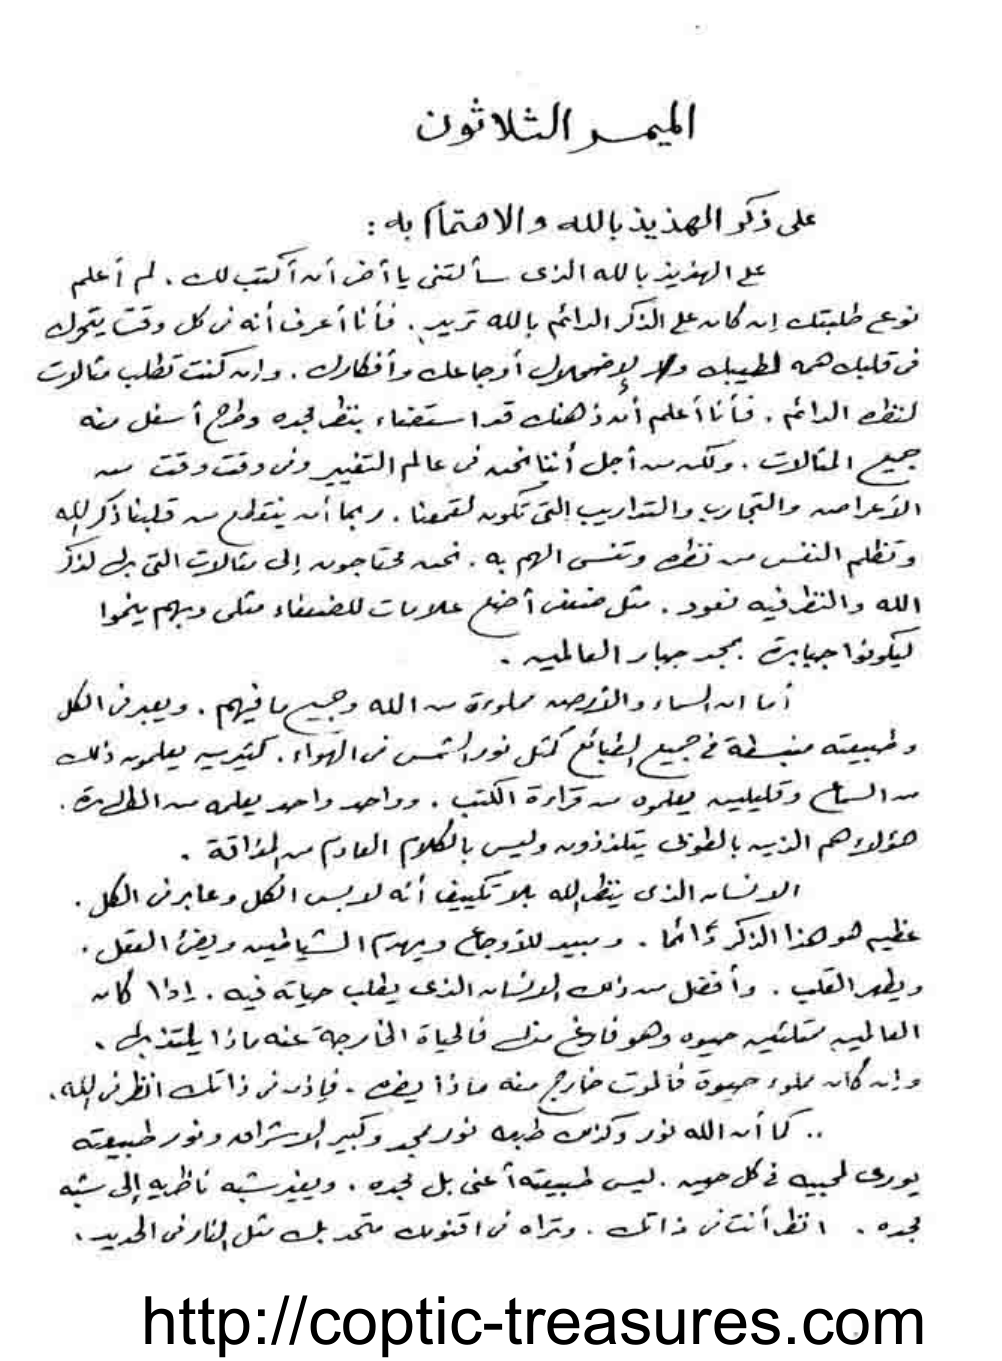 الميمر الثلاثون
على ذكر الهذيذ بالله والاهتمام به :
على الهذيذ بالله الذى سألتنى يا أخى أن أكتب لك . لم أعلم
نوع طلبتك إن كان على الذكر الدائم بالله تريد . فأنا أعرف أنه فى كل وقت يتحرك
فى قلبك همه لطيبك ولإضمحلال أوجاعك وأفكارك . وإن كنت تطلب مثالات
لنظره الدائم . فأنا أعلم أن ذهنك قد استضاء بنظر مجده وطرح أسفل منه
جميع المثالات . ولكن من أجل أننا نحن فى عالم التغيير وفى وقت وقت من
الأعراض والتجارب والتداريب التى تكون لقمعنا . ربما أن ينقطع من قلبنا ذكر الله
وتظلم النفس من نظره وتنسى الهم به . نحن محتاجون إلى مثالات التى بها لذكر
الله والنظر فيه نعود . مثل ضعفى أضع علامات للضعفاء مثلى وبهم ينموا
ليكونوا جبابرة بمجد جبار العالمين .
أما ان السماء والأرض مملوءة من الله وجميع ما فيهم . ويعبر فى الكل
وطبيعته منبسطة فى جميع الطبائع كمثل نور الشمس فى الهواء . كثيرين يعلمون ذلك
من السماع وقليلين يعلموه من قراءة الكتب . وواحد واحد يعلمه من الطهارة .
هؤلاء هم الذين بالطوبى يتلذذون وليس بالكلام العادم من المذاقة .
الانسان الذى ينظر الله بلا تكييف أنه لابس الكل وعابر فى الكل .
عظيم هو هذا الذكر دائما . ومبيد للأوجاع ويهزم الشياطين ويضئ العقل .
ويطهر القلب . وأفضل من ذلك الإنسان الذى يطلب حياته فيه . إذا كان
العالمين ممتلئين حيوه وهو فارغ منها فالحياة الخارجة عنه ماذا يلتذ بها .
وإن كان مملوء حيوة فالموت خارج منه ماذا يضره . فإذن فى ذاتك انظر فى الله .
.. كما أن الله نور وكذلك طبعه نور مجد وكثير الاشراق ونور طبيعته
يورى لمحبيه فى كل حين . ليس طبيعته أعنى بل مجده . ويغير شبه ناظريه إلى شبه
مجده . انظر أنت فى ذاتك . وتراه فى اقنومك متحد بك مثل النار فى الحديد .
http://coptic-treasures.com